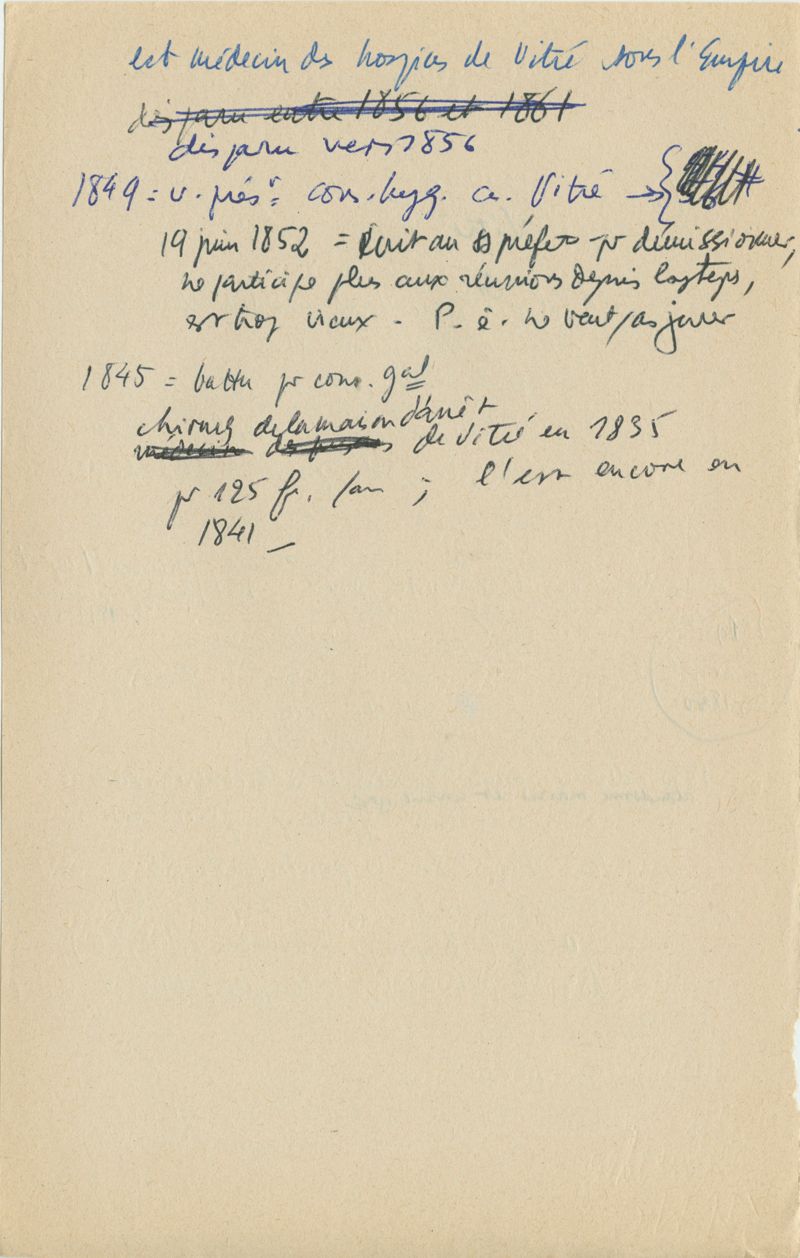 est médecin des hospices de Vitré sous l'Empire
disparu entre 1856 et 1861
disparu vers 1856
1849 = v. présᵗ cons. hyg. ar. Vitré → {
19 juin 1852 = écrit au ss préfet pr démissionner,
ne participe plus aux réunions depuis lgtemps,
est trop vieux - P. ê. ne veut pas jurer
1845 = battu pr cons. gal
chirurg de la maison d'arrêt
médecin des prisons de Vitré en 1835
pr 125 fr. /an ; l'est encore en
1841 _